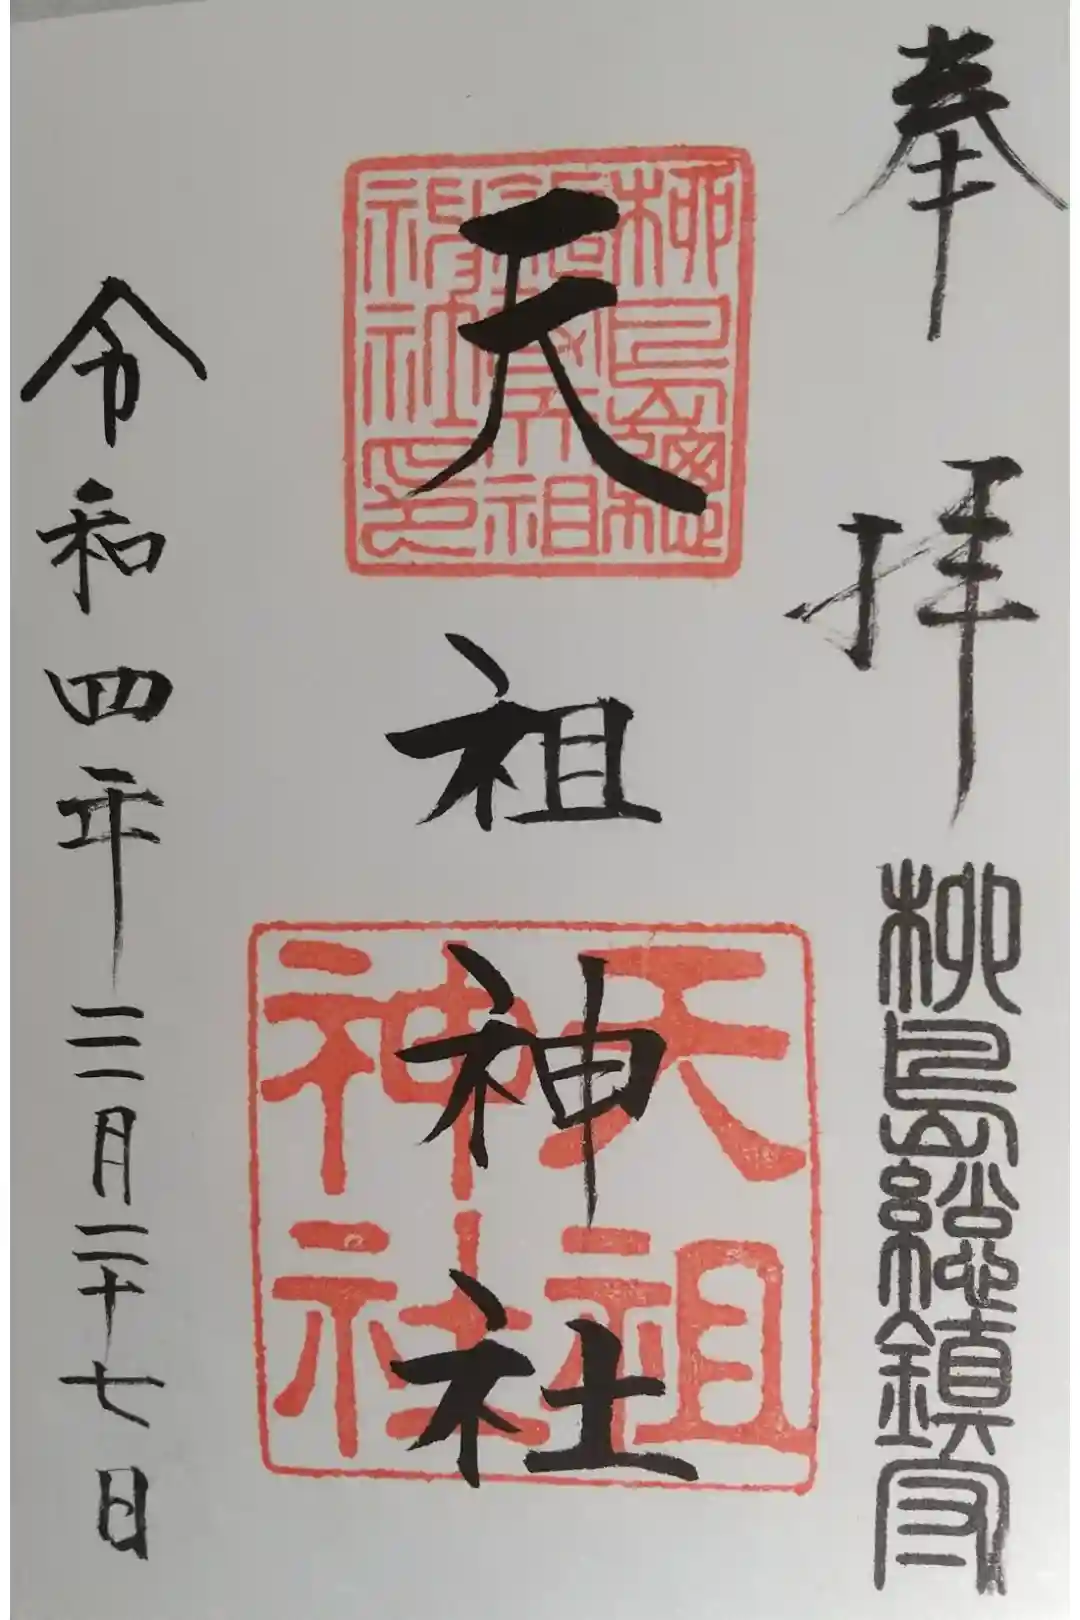 奉拝
柳島總鎮守
柳島總
鎮守天祖
神社印
天祖神社
天祖
神社
令和四年三月二十七日